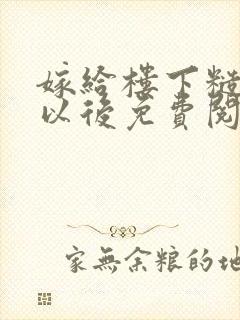 嫁給樓下糙
以後免費閱
家無余粮的地